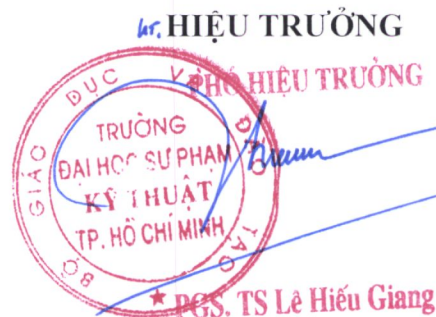 KT. HIỆU TRƯỞNG
PHÓ HIỆU TRƯỞNG
BỘ GIÁO DỤC VÀ ĐÀO TẠO
TRƯỜNG
ĐẠI HỌC SƯ PHẠM
KỸ THUẬT
TP. HỒ CHÍ MINH
PGS. TS Lê Hiếu Giang